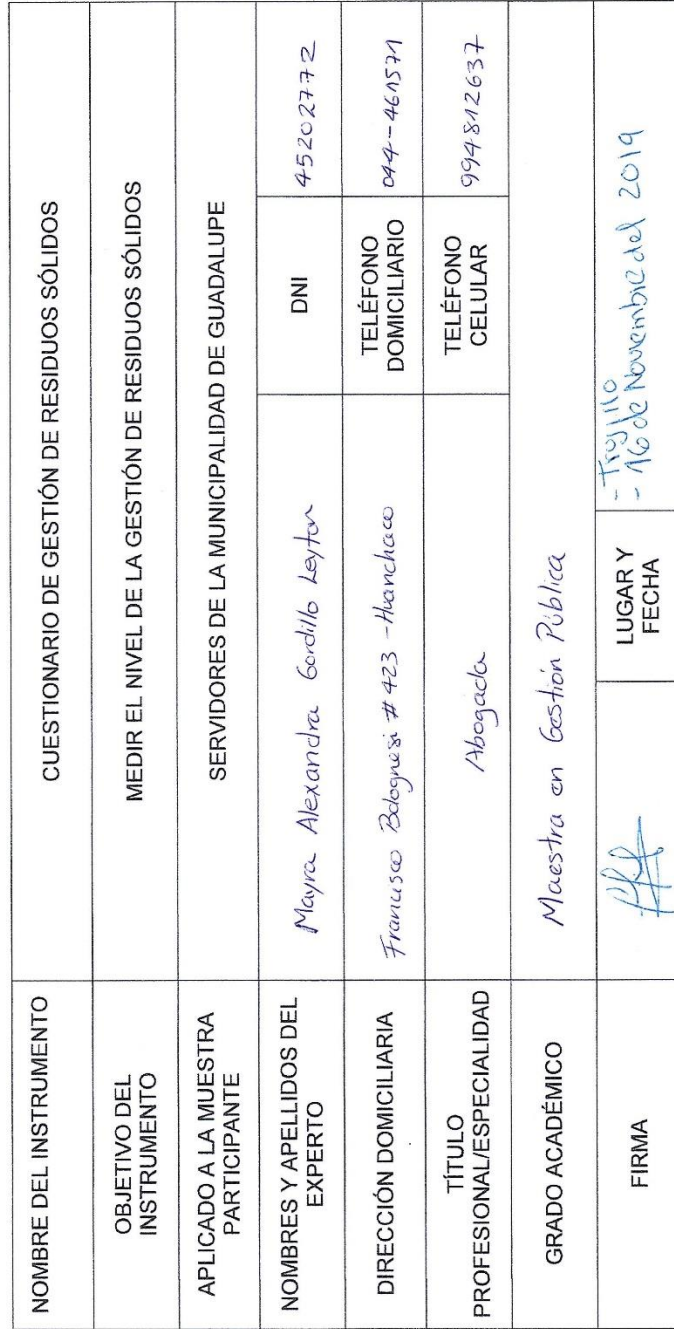 NOMBRE DEL INSTRUMENTO
CUESTIONARIO DE GESTIÓN DE RESIDUOS SÓLIDOS
OBJETIVO DEL
INSTRUMENTO
MEDIR EL NIVEL DE LA GESTIÓN DE RESIDUOS SÓLIDOS
APLICADO A LA MUESTRA
PARTICIPANTE
SERVIDORES DE LA MUNICIPALIDAD DE GUADALUPE
NOMBRES Y APELLIDOS DEL
EXPERTO
Mayra Alexandra Gordillo Leyton
DNI
45202772
DIRECCIÓN DOMICILIARIA
Francisco Bolognesi # 423 - Huanchaco
TELÉFONO
DOMICILIARIO
044-461571
TÍTULO
PROFESIONAL/ESPECIALIDAD
Abogada
TELÉFONO
CELULAR
994812637
GRADO ACADÉMICO
Maestra en Gestión Pública
FIRMA
LUGAR Y
FECHA
- Trujillo
- 16 de Noviembre del 2019